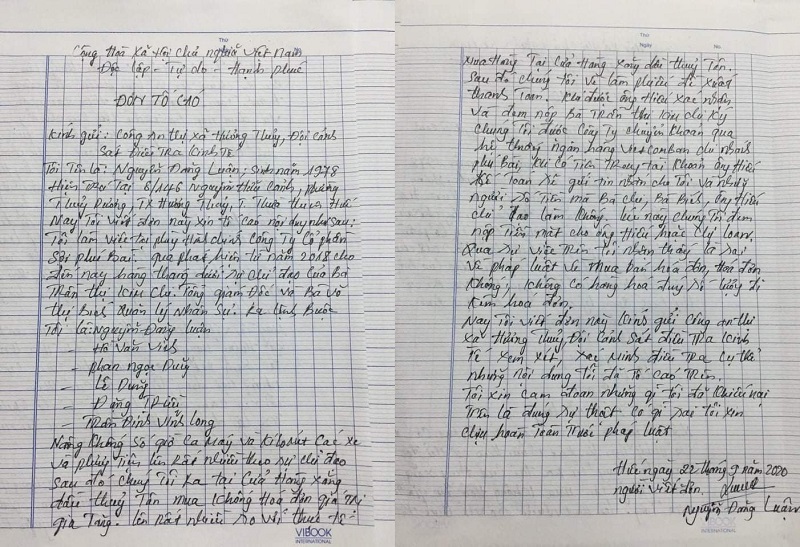 Thứ
Ngày
No.
Cộng Hoà Xã Hội Chủ nghĩa Việt Nam
Độc lập - Tự do - Hạnh phúc
ĐƠN TỐ CÁO
Kính gửi: Công an thị xã Hương Thủy, Đội cảnh
Sát điều Tra Kinh Tế
Tôi Tên là: Nguyễn Đăng Luận; Sinh năm 1978
Hiện Trú Tại 6/146 Nguyễn Hữu Cảnh, Phường
Thủy Dương, TX Hương Thủy, T. Thừa thiên Huế
Nay Tôi viết đơn này xin tố cáo nội dung như sau:
Tôi làm việc tại phòng Hành chính Công Ty Cổ phần
Sợi phú Bài. qua phát hiện từ năm 2018 cho
đến nay hàng tháng dưới sự chỉ đạo của Bà
Trần thị Kim Chi. Tổng giám Đốc và Bà Võ
thị Bích Quản lý Nhân Sự. Ra lệnh Buộc
Tôi là: Nguyễn Đăng Luận
- Hồ Văn Vinh
- phan ngọc Duy
- Lê Dũng
- Đặng
- Trần Đình Vĩnh Long
Nâng Khống Số giờ Ca máy và Kilomet Các xe
và phương Tiện lên Rất nhiều theo sự chỉ đạo
sau đó chúng Tôi Ra tại Cửa Hàng Xăng
dầu Thuỷ Tân mua Khống Hoá đơn giá Trị
gia Tăng. lên Rất nhiều so với thực tế
VIBOOK
INTERNATIONAL
Thứ
Ngày
No.
Mua Hàng Tại Cửa Hàng Xăng dầu Thuỷ Tân.
Sau đó chúng Tôi về làm phiếu đề xuất
thanh Toán. Khi được ông Hiếu xác nhận
và đem nộp Bà Trần thị Kim Chi Ký
Chúng Tôi được Công Ty chuyển Khoản qua
hệ thống ngân hàng Vietcombank chi nhánh
phú Bài, Khi Có Tiền Trong tài Khoản ông Hiếu
Kế Toán Sẽ gửi tin nhắn cho Tôi và những
người số Tiền mà Bà Chi, Bà Bích, ông Hiếu
chỉ đạo làm Khống. Lúc này chúng Tôi đem
nộp Tiền mặt cho ông Hiếu hoặc Chị Loan.
Qua Sự việc Trên Tôi nhận thấy là sai
về pháp luật về mua bán hoá đơn, Hoá đơn
Khống, Không có hàng hoá
Kèm hoá đơn.
Nay Tôi viết đơn này Kính gửi Công an thị
xã Hương Thủy, Đội Cảnh Sát điều Tra Kinh
Tế xem xét, xác minh điều Tra cụ thể
những nội dung Tôi đã Tố cáo Trên.
Tôi xin cam đoan những gì tôi đã khiếu nại
Trên là đúng sự thật có gì sai tôi xin
chịu hoàn Toàn Trước pháp luật
Huế ngày 22 tháng 9 năm 2020
người viết đơn
Nguyễn Đăng Luận
VIBOOK
INTERNATIONAL